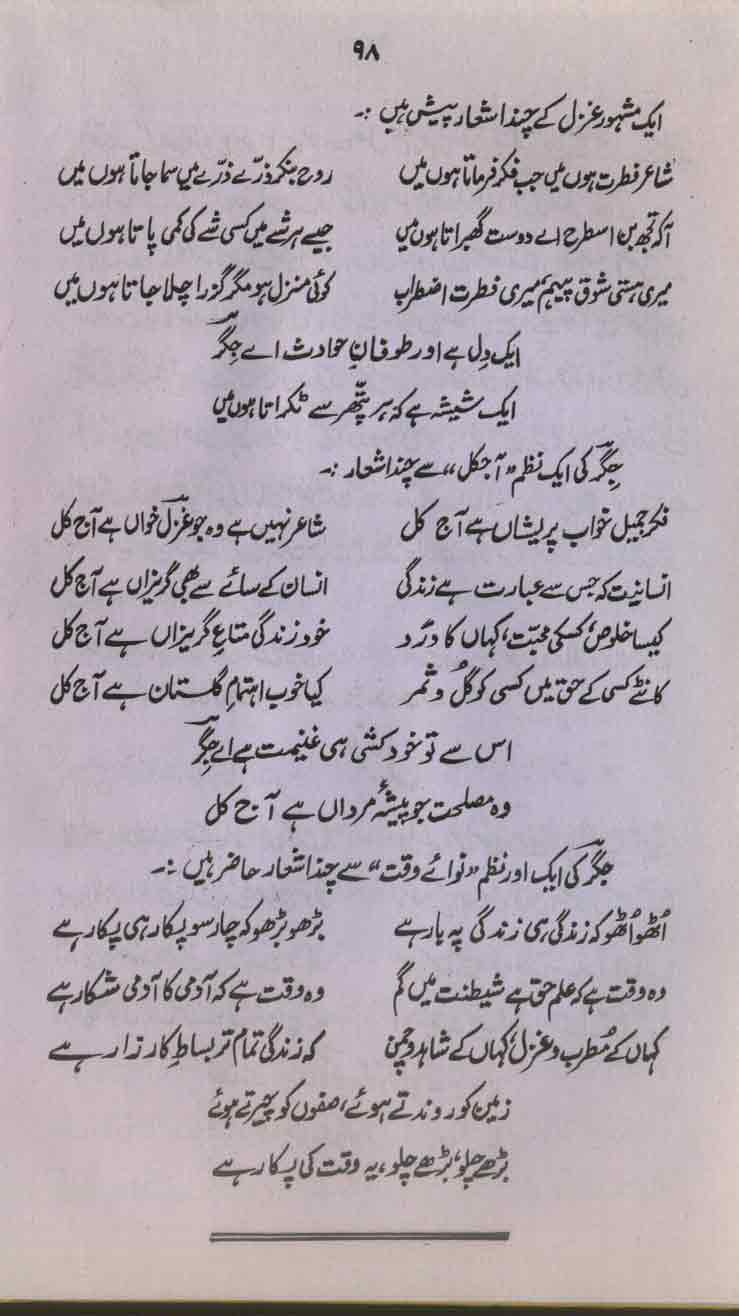 ۹۸
ایک مشہور غزل کے چند اشعار پیش ہیں :۔
شاعرِ فطرت ہوں میں جب فکر فرماتا ہوں میں روح بنکر ذرّے ذرّے میں سما جاتا ہوں میں
آکہ تجھ بن اسطرح اے دوست گھبراتا ہوں میں جیسے ہر شے میں کسی شے کی کمی پاتا ہوں میں
میری ہستی شوق پیہم، میری فطرت اضطراب کوئی منزل ہو مگر گزرا چلا جاتا ہوں میں
ایک دِل ہے اور طوفانِ حوادث اے جِگرؔ
ایک شیشہ ہے کہ ہر پتّھر سے ٹکراتا ہوں میں
جِگرؔ کی ایک نظم ”آجکل“ سے چند اشعار :۔
فکرِ جمیل خواب پریشاں ہے آج کل شاعر نہیں ہے وہ جو غزل خواں ہے آج کل
انسانیت کہ جس سے عبارت ہے زندگی انسان کے سائے سے بھی گریزاں ہے آج کل
کیسا خلوص، کسکی محبّت، کہاں کا درد خود زندگی متاعِ گریزاں ہے آج کل
کانٹے کسی کے حق میں کسی کو گُل و ثمر کیا خوب اہتمامِ گلستان ہے آج کل
اس سے تو خودکشی ہی غنیمت ہے اے جِگرؔ
وہ مصلحت جو پیشۂ مرداں ہے آج کل
جِگرؔ کی ایک اور نظم ”نوائے وقت“ سے چند اشعار حاضر ہیں :۔
اُٹھو اُٹھو کہ زندگی ہی زندگی پہ بار ہے بڑھو بڑھو کہ چار سو پکار ہی پکار ہے
وہ وقت ہے کہ علم حق ہے شیطنت میں گم وہ وقت ہے کہ آدمی کا آدمی شکار ہے
کہاں کے مُطرب و غزل، کہاں کے شاہد و چمن کہ زندگی تمام تر بساطِ کارزار ہے
زمین کو روندتے ہوئے، صفوں کو چیرتے ہوئے
بڑھے چلو، بڑھے چلو، یہ وقت کی پکار ہے